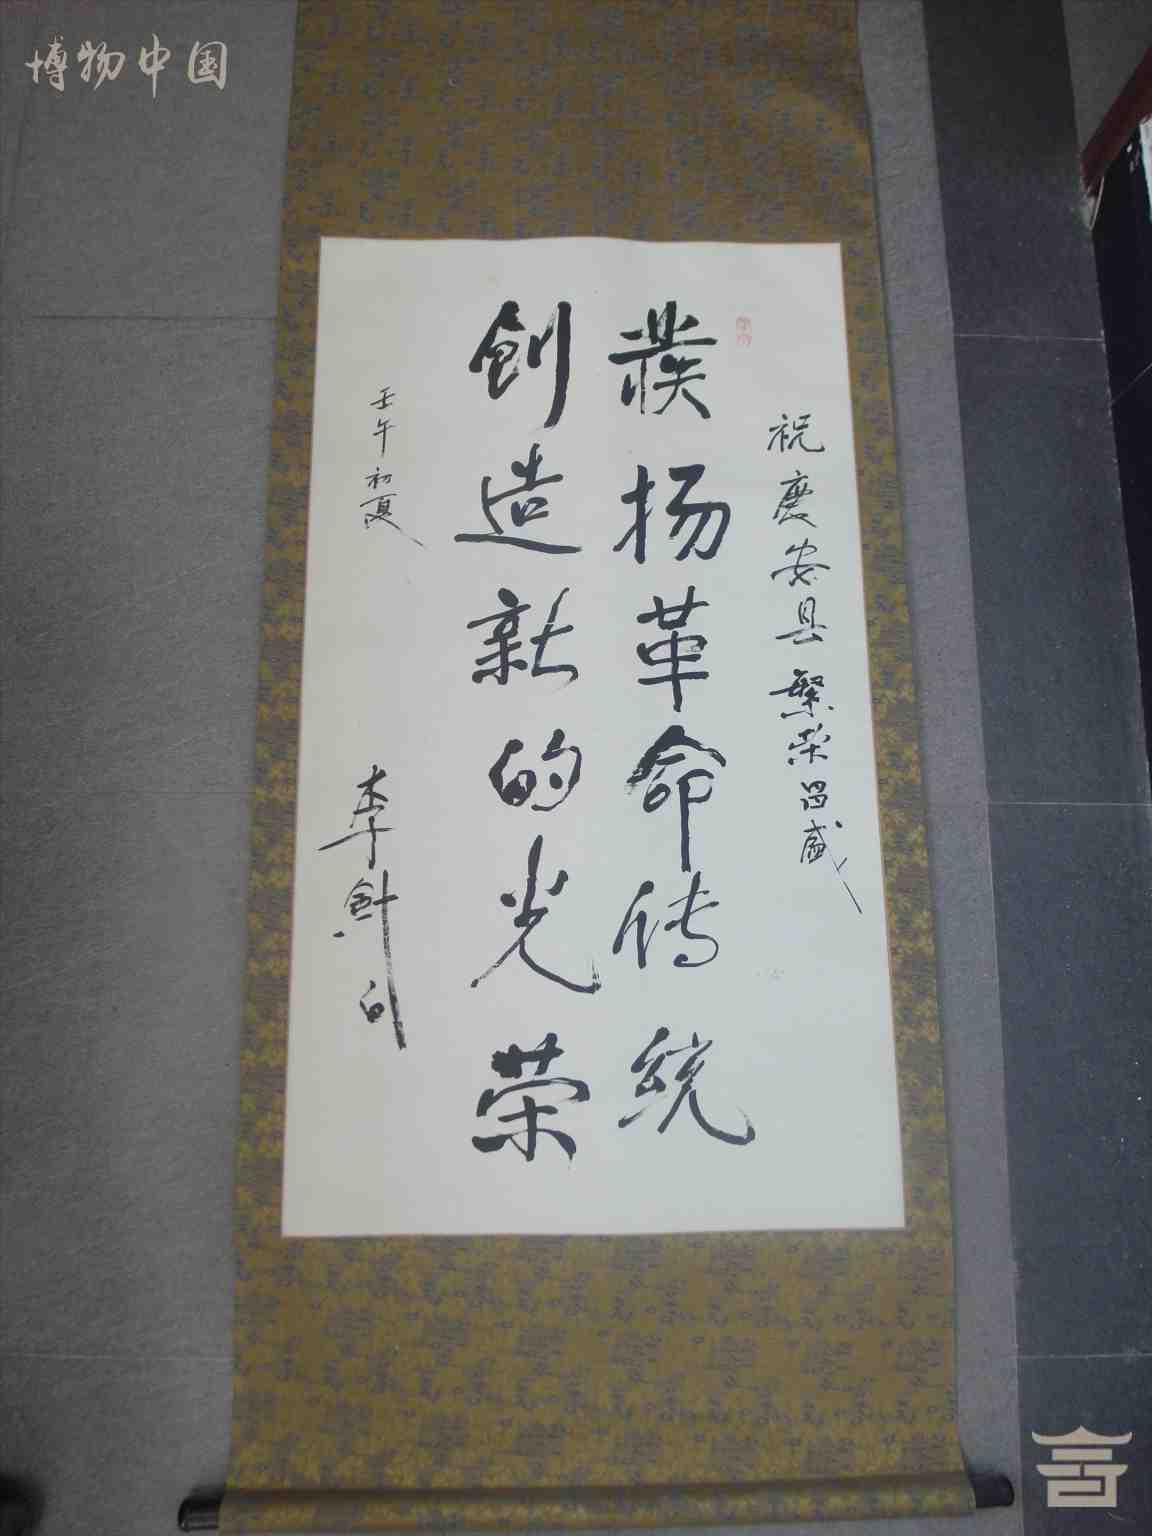 博物中国
祝庆安县繁荣昌盛
发扬革命传统
创造新的光荣
壬午初夏
李剑白